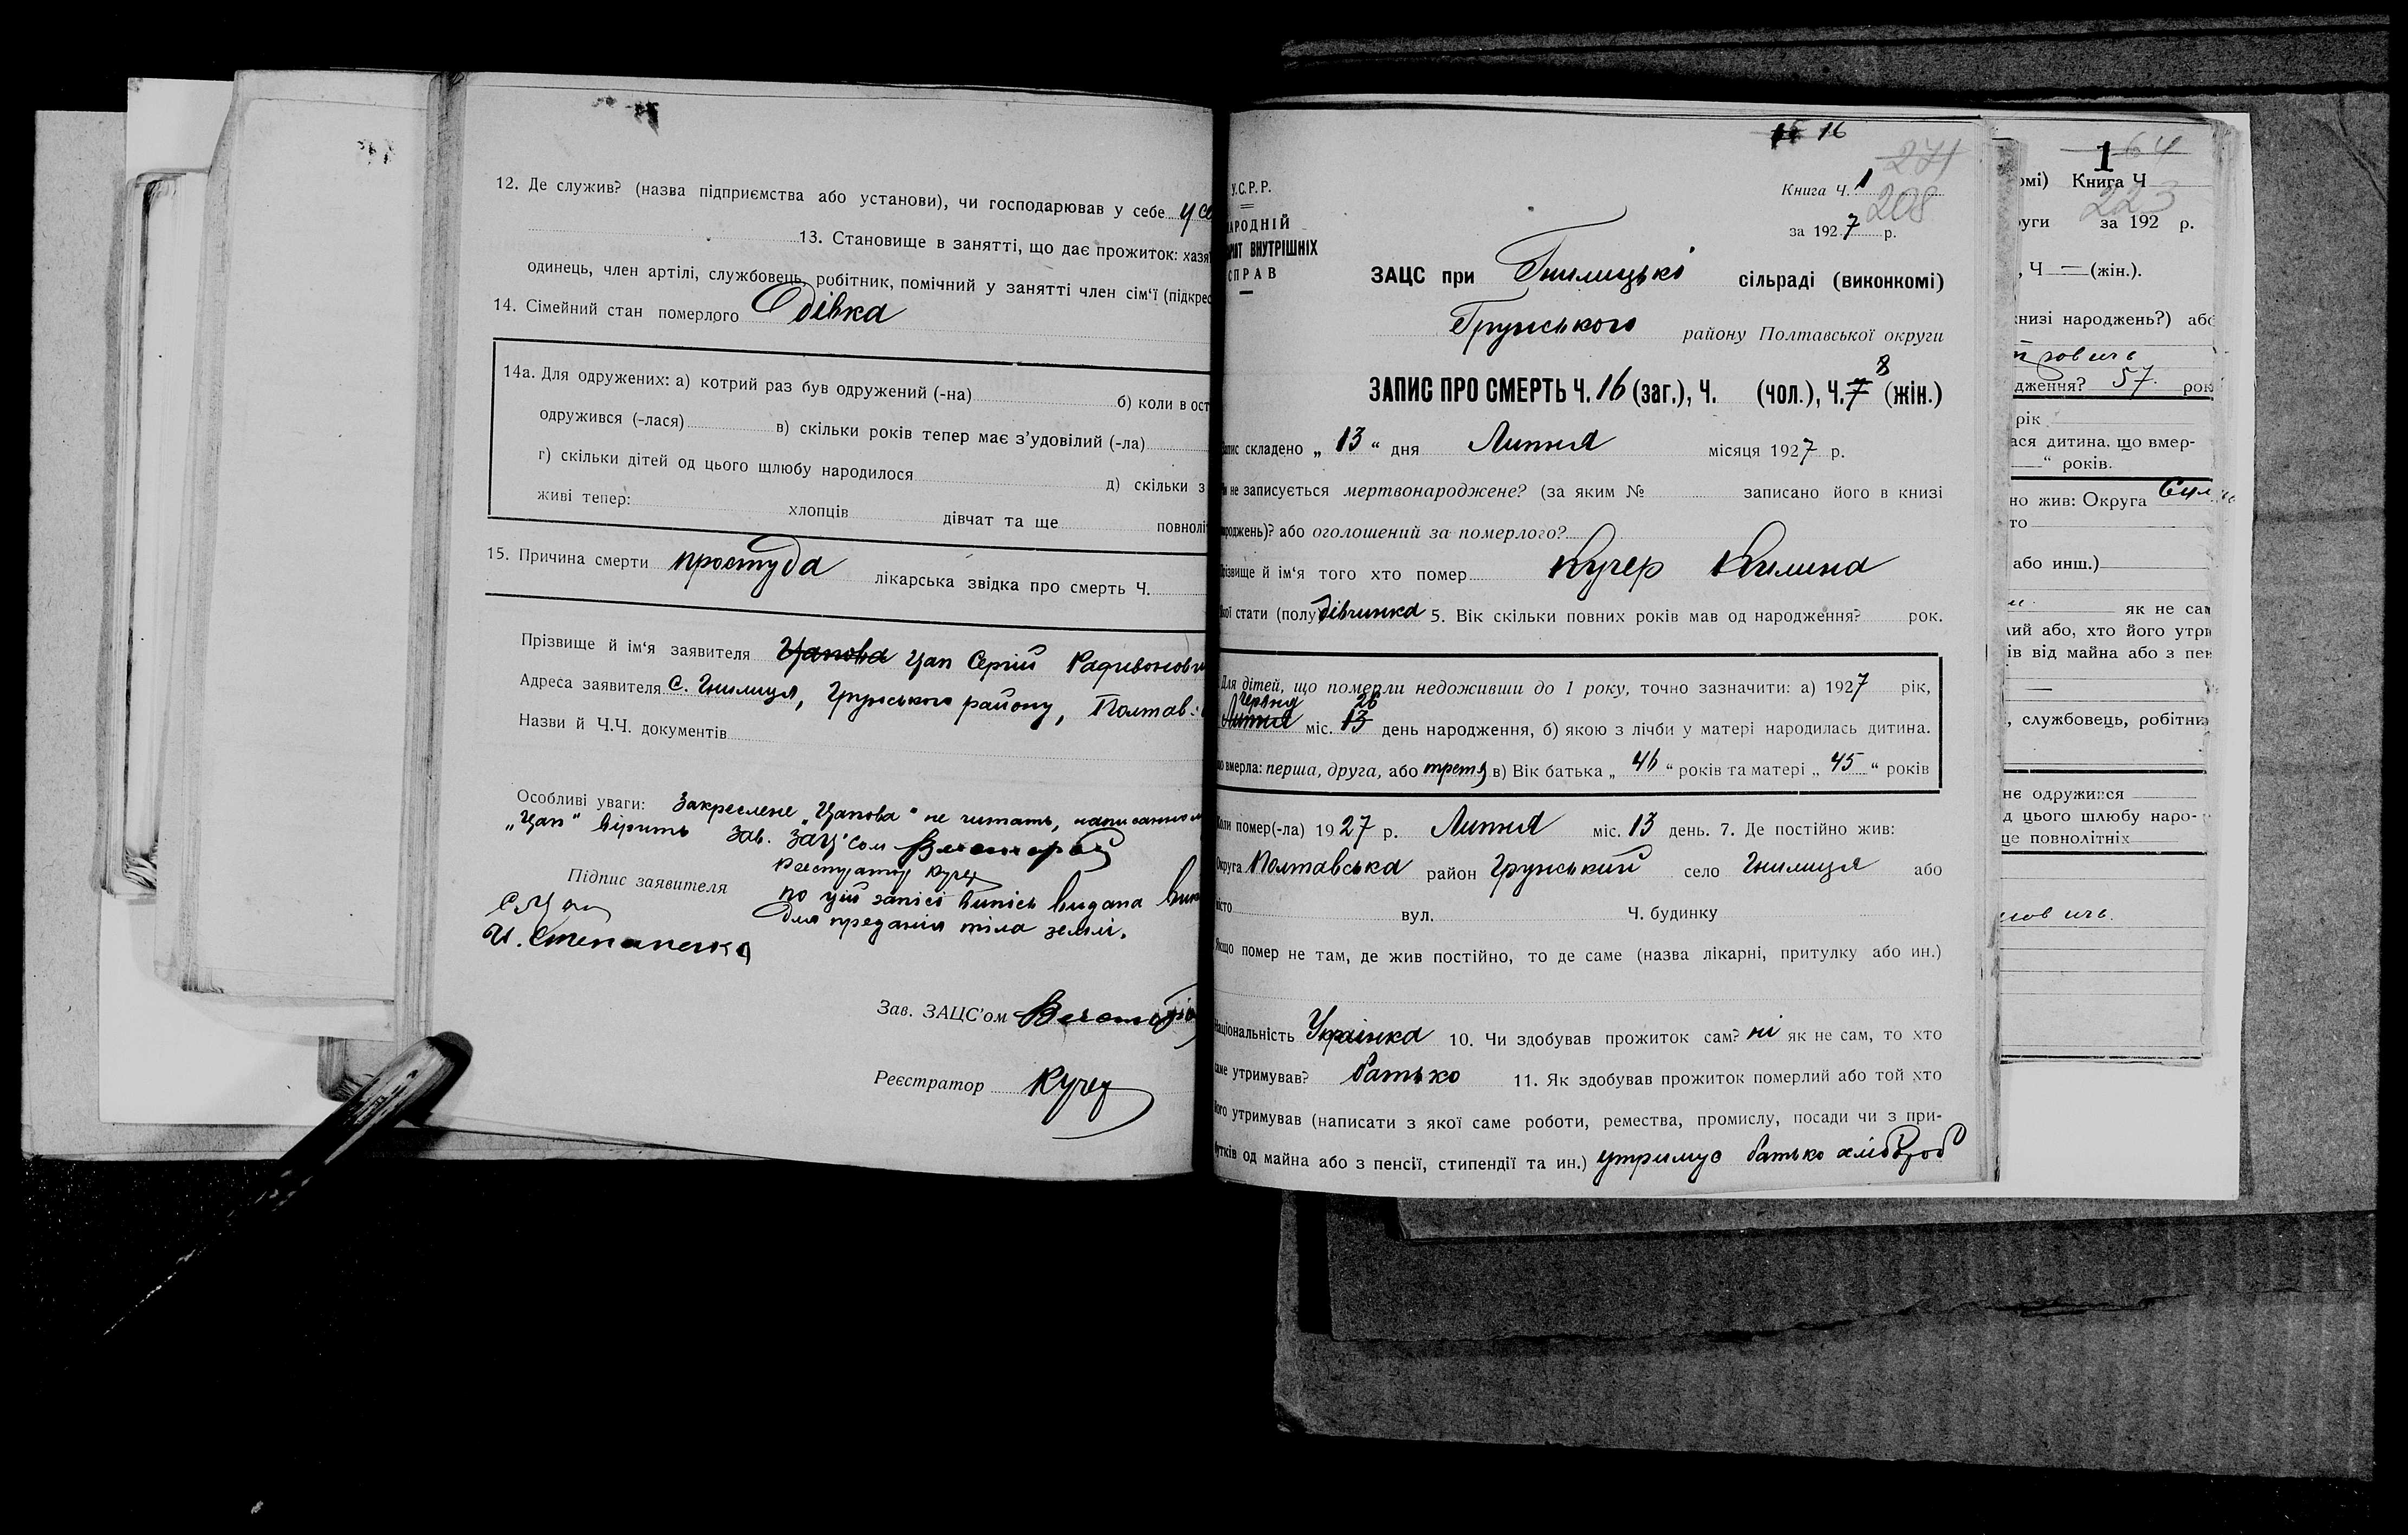 12. Де служив? (назва підприємства або установи), чи господарював у себе у се
13. Становище в занятті, що дає прожиток: хазя
одинець, член артілі, службовець, робітник, помічний у занятті член сім'ї (підкрес
14. Сімейний стан померлого Вдівка
14а. Для одружених: а) котрий раз був одружений (-на) б) коли в ост
одружився (-лася) в) скільки років тепер має з'удовілий (-ла)
г) скільки дітей од цього щлюбу народилося д) скільки з
живі тепер: хлопців дівчат та ще повноліт
15. Причина смерти простуда лікарська звідка про смерть Ч.
Прізвище й ім'я заявителя Цапова Цап Сергій Радивонови
Адреса заявителя С. Гнилиця, Грунського району, Полтав.
Назви й Ч.Ч. документів
Особливі уваги: Закреслене „Цапова" не читать, написанном
„Цап" вірить Зав. Зацсом
Реєстратор Кучер
Підпис заявителя по цій записі випись видана
С. Цап для предания тіла землі.
И. Степаненко
Зав. ЗАЦС'ом
Реєстратор Кучер
16
271
У.С.Р.Р.
Книга Ч. 1
208
АРОДНІЙ
РІЯТ ВНУТРІШНІХ
СПРАВ
за 1927 р.
ЗАЦС при Гнилицькі сільраді (виконкомі)
Грунського району Полтавської округи
ЗАПИС ПРО СМЕРТЬ Ч. 16 (заг.), Ч. (чол.), Ч. 7 8 (жін.)
апис складено „ 13 " дня Липня місяця 1927 р.
и не записується мертвонароджене? (за яким № записано його в книзі
ароджень)? або оголошений за померлого?
різвище й ім'я того хто помер Кучер Килина
кої стати (полу) дівчинка 5. Вік скільки повних років мав од народження? рок.
Для дітей, що померли недоживши до 1 року, точно зазначити: а) 1927 рік,
Червня 26
Липня міс. 13 день народження, б) якою з лічби у матері народилась дитина.
що вмерла: перша, друга, або третя в) Вік батька „ 46 " років та матері „ 45 " років
Коли помер(-ла) 1927 р. Липня міс. 13 день. 7. Де постійно жив:
Округа Полтавська район Грунський село Гнилиця або
місто вул. Ч. будинку
Якщо помер не там, де жив постійно, то де саме (назва лікарні, притулку або ин.)
Національність Українка 10. Чи здобував прожиток сам? ні як не сам, то хто
саме утримував? батько 11. Як здобував прожиток померлий або той хто
його утримував (написати з якої саме роботи, ремества, промислу, посади чи з при-
бутків од майна або з пенсії, стипендії та ин.) утримує батько хлібороб
1 64
омі) Книга Ч
223
руги за 192 р.
, Ч — (жін.).
книзі народжень?) або
дження? 57 рок
рік
ася дитина, що вмер-
— " років.
но жив: Округа
то
або инш.)
як не сам
лий або, хто його утри
ів від майна або з пен
—
, службовець, робітни
не одружився
д цього шлюбу наро-
ще повнолітніх